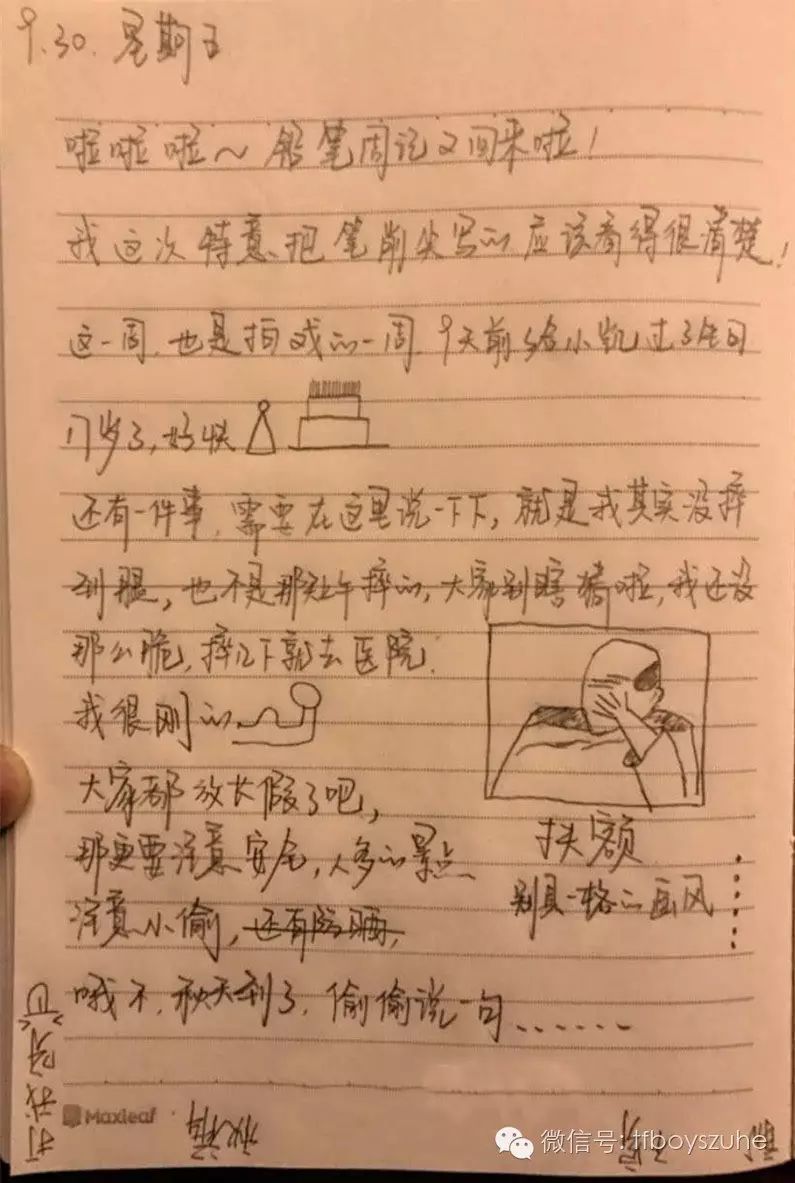 9.30. 星期五
啦啦啦～ 铅笔周记又回来啦！
我这次特意把笔削尖写的应该看得很清楚！
这一周，也是拍戏的一周，9天前给小凯过了生日
17岁了，好快
还有一件事，需要在这里说一下下，就是我其实没摔
到腿，也不是那处午摔的，大家别瞎猜啦，我还没
那么脆，摔几下就去医院.
我很刚的
大家都放长假了吧，
那更要注意安全，人多的景点
注意小偷，还有防晒，
哦不，秋天到了，偷偷说一句......
扶额
别具一格的画风
Maxleaf
秋裤
微信号: tfboyszuhe